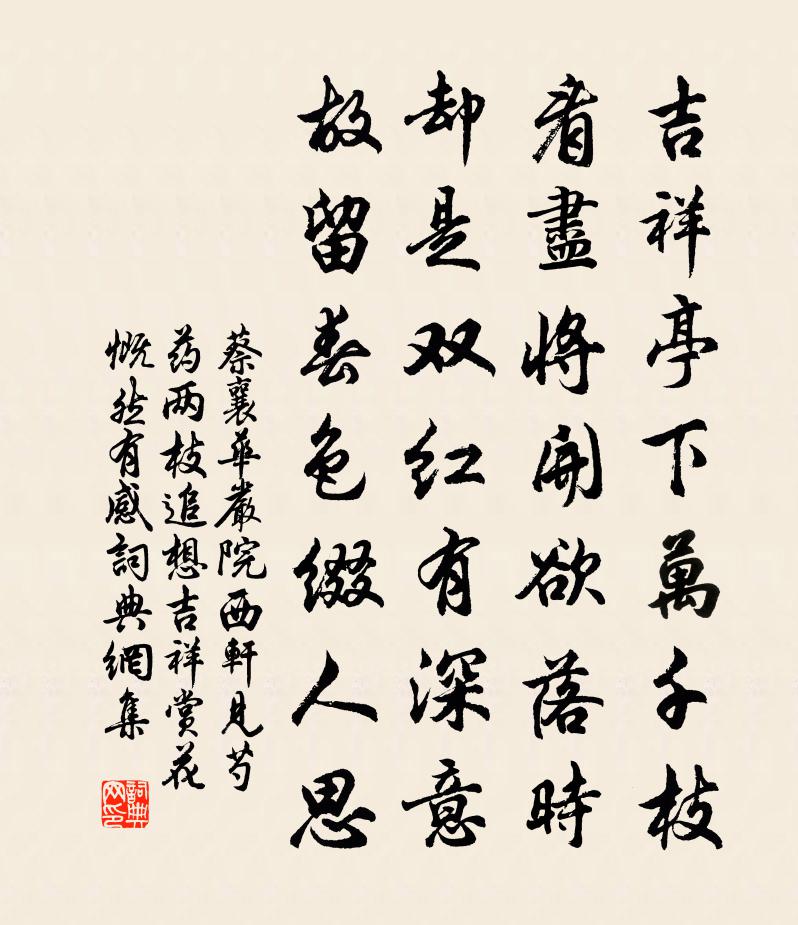 吉祥亭下萬千枝
看盡將開欲落時
却是双红有深意
故留春色缀人思
蔡襄華嚴院西軒見芍
药两枝追想吉祥赏花
慨然有感詞典網集
詞典网印